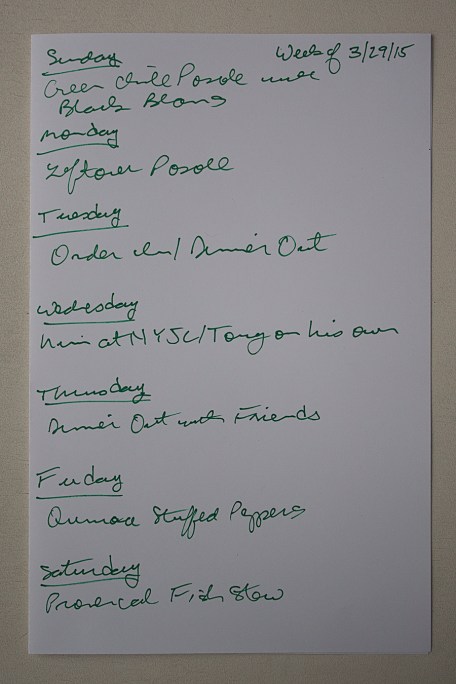 Sunday Week of 3/29/15
Green Chile Posole with
Black Beans
Monday
Leftover Posole
Tuesday
Order In/Dinner Out
Wednesday
at NYSC/Tony on his own
Thursday
Dinner Out with Friends
Friday
Quinoa Stuffed Peppers
Saturday
Provencal Fish Stew